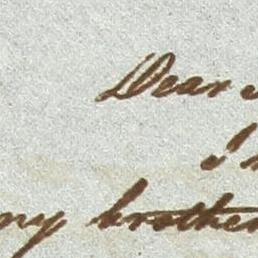 Dear
my brother